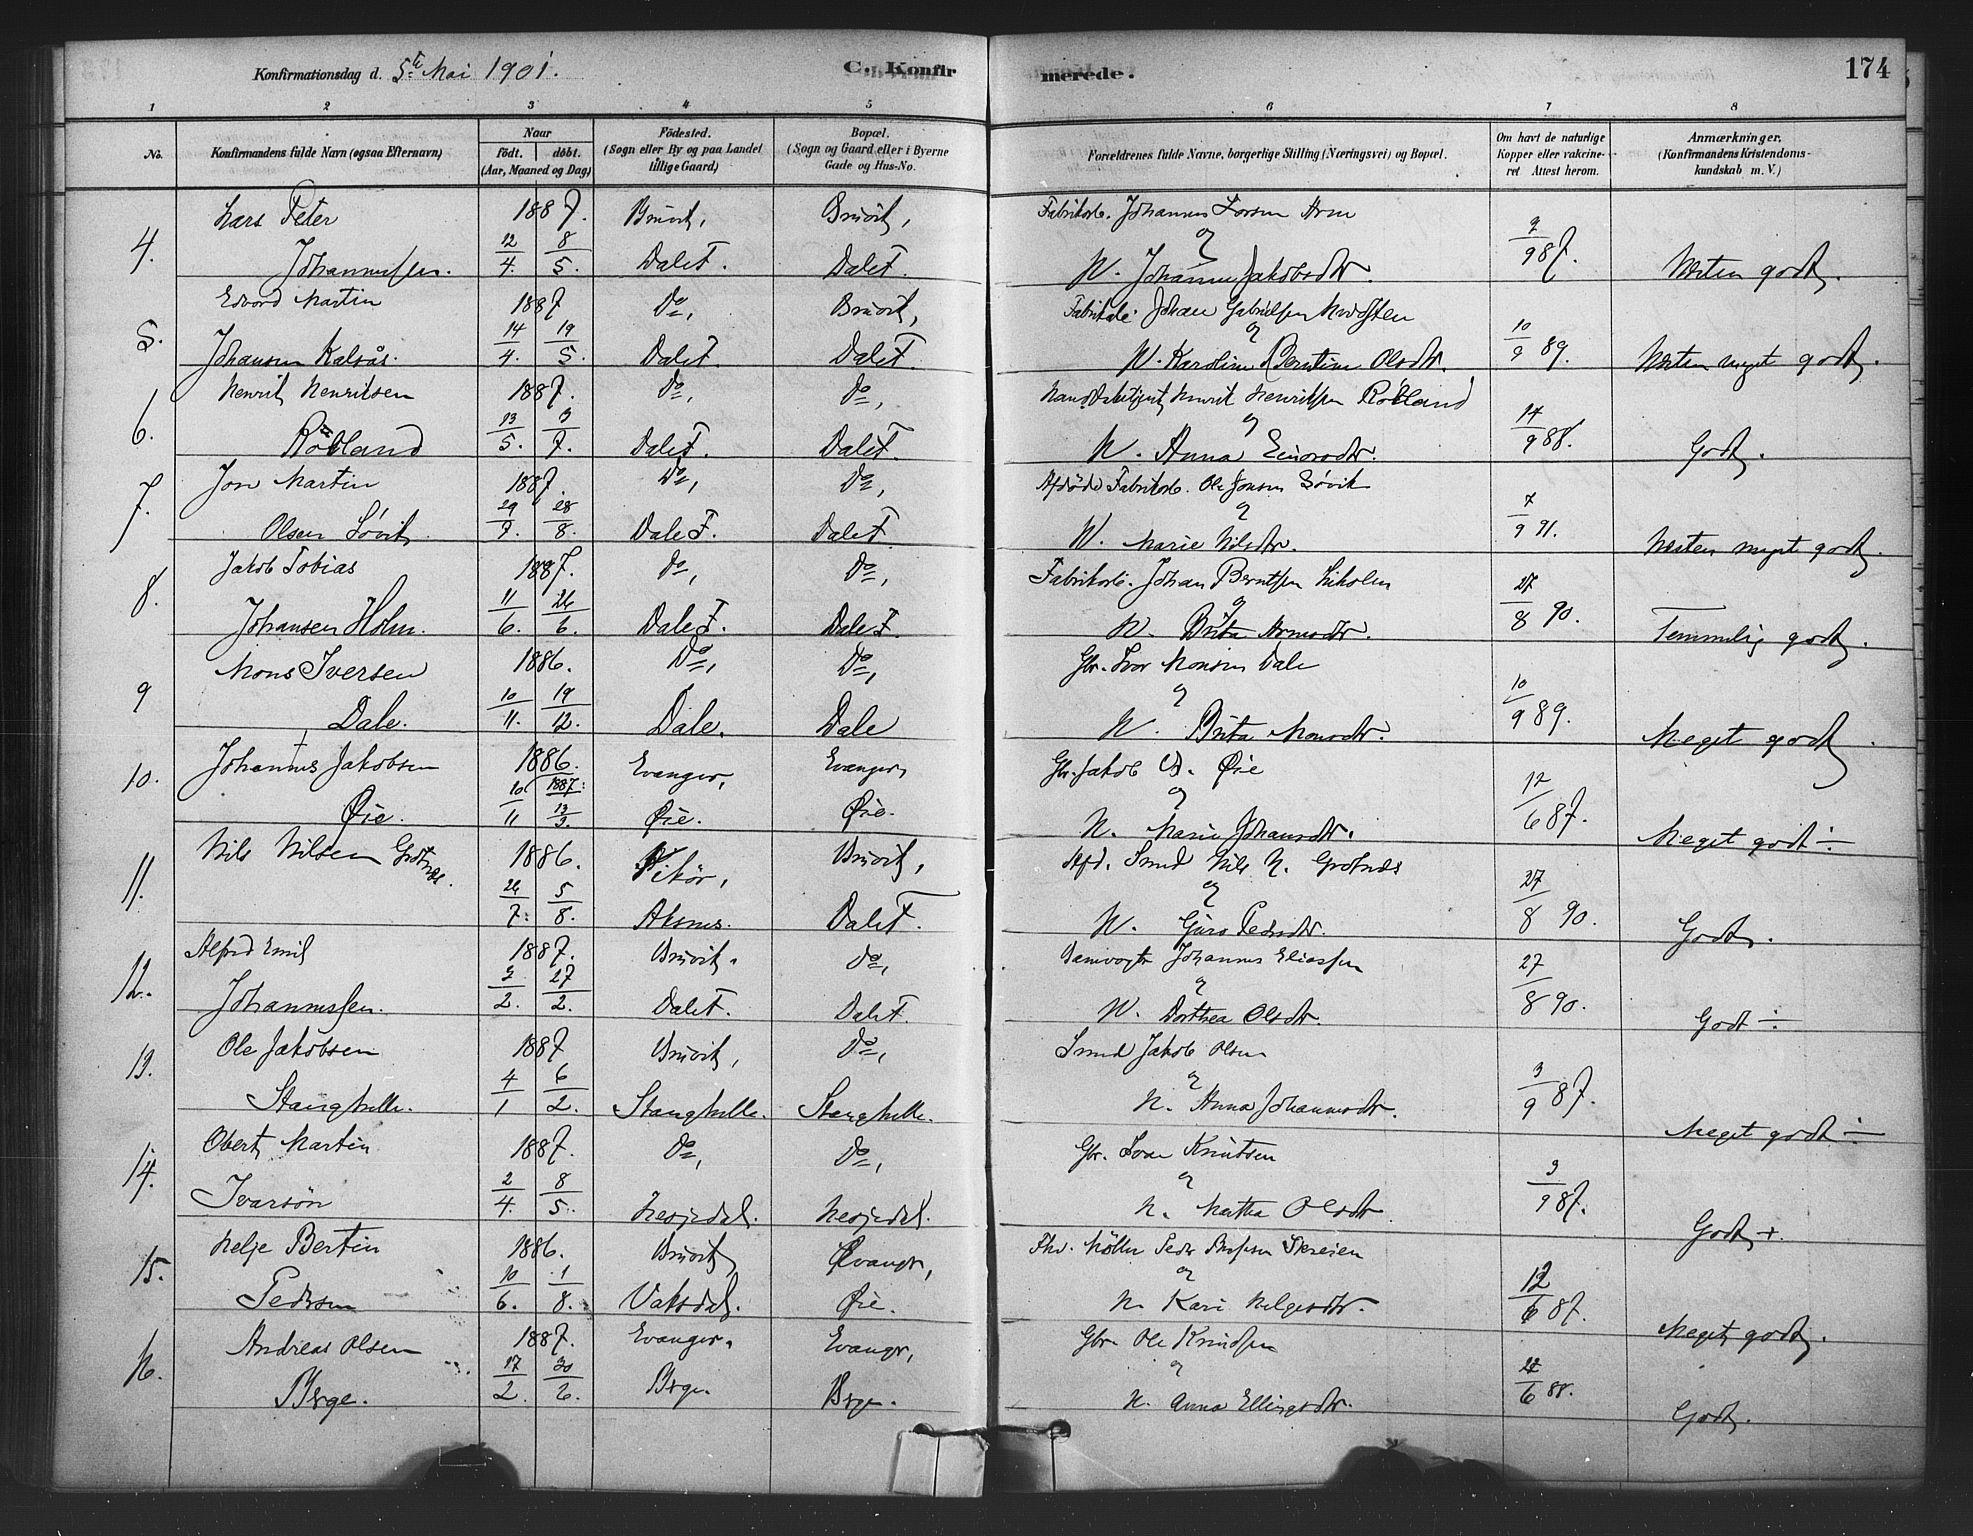 Konfirmationsdag d. 5te Mai 1901.
C. Konfirmerede.
174
1 2 3 4 5 6 7 8
No.
Konfirmandens fulde Navn (ogsaa Efternavn)
Naar
födt. döbt.
(Aar, Maaned og Dag)
Födested.
(Sogn eller By og paa Landet tillige Gaard)
Bopæl.
(Sogn og Gaard eller i Byerne Gade og Hus-No.
Forældrenes fulde Navne, borgerlige Stilling (Næringsvei) og Bopæl.
Om havt de naturlige Kopper eller vakcineret Attest herom.
Anmærkninger.
(Konfirmandens Kristendomskundskab m. V.)
4. Lars Peter 1887. Bruvik, Bruvik, Fabrikarb. Johannes
Johannessen. 12/4. 8/5. Dale F. Dale F. og H. Johanne Jakobsdtr. 2/9 87. Næsten godt.
5. Edvard Martin 1887 Do, Bruvik, Johan Gabrielsen
Johansen Kalsås. 14/4. 19/5. Dale F. Dale F. og H. Karoline Berntine Olsdtr. 10/9 89. Næsten meget godt.
6. Henrik Henriksen 1887. Do, Do, Henrik Henriksen Rödland
Rödland 13/5. 3/7. Dale F. Dale F. og H. Anna Einarsdtr. 14/9 88. Godt.
7. Jon Martin 1887. Do, Do, Afdöde Fabrikarb. Ole Jonsen Søvik
Olsen Søvik 29/7. 28/8. Dale F. Dale F. og H. Marie Nilsdtr. 7/9 91. Næsten meget godt.
8. Jakob Tobias 1887. Do, Do, Fabrikarb. Johan Berntsen
Johansen Holm. 11/6. 26/6. Dale F. Dale F. og H. Brita Arnesdtr. 27/8 90. Temmelig godt.
9 Mons Iversen 1886. Do, Do, Gbr. Ivar Monsen Dale
Dale. 10/11. 19/12. Dale. Dale og H. Brita Monsdtr. 10/9 89. Meget godt.
10. Johannes Jakobsen 1886. 1887. Evanger, Evanger, Gbr. Jakob O. Øie
Øie. 10/11 13/3. Øie. Øie. og H. Marie Johansdtr. 12/6 87. Meget godt ÷
11. Nils Nilsen Grotnæs. 1886. Vikör, Bruvik, Afd. Smed Nils N. Grotnæs
26/7. 5/8. Aksnes. Dale F. og H. Guro Pedersdtr. 27/8 90. Godt.
12. Alfred Emil 1887. Bruvik. Do, Johannes Eliassen
Johannessen. 3/2. 27/2. Dale F. Dale F. og H. Dorthea Olsdtr. 27/8 90. Godt ÷
13. Ole Jakobsen 1887 Bruvik, Do, Smed Jakob Olsen
Stanghelle. 4/1 6/2. Stanghelle. Stanghelle. og H. Anna Johannesdtr. 3/9 87. Meget godt ÷
14. Obert Martin 1887. Do, Do, Gbr. Ivar Knutsen
Ivarsön 2/4. 8/5. Hesjedal. Hesjedal. og H. Martha Olsdtr 3/9 87. Godt +.
15. Helje Bertin 1886. Bruvik, Evanger, Fhv. Möller Peder Skreien
Pedersen 10/6. 1/8. Vaksdal. Øie. og H. Kari Helgesdtr. 12/6 87. Meget godt.
16. Andreas Olsen 1887. Evanger. Evanger, Gbr. Ole Knudsen
Berge. 17/2. Berge. Berge. og H. Anna Ellingsdtr. 88. Godt.